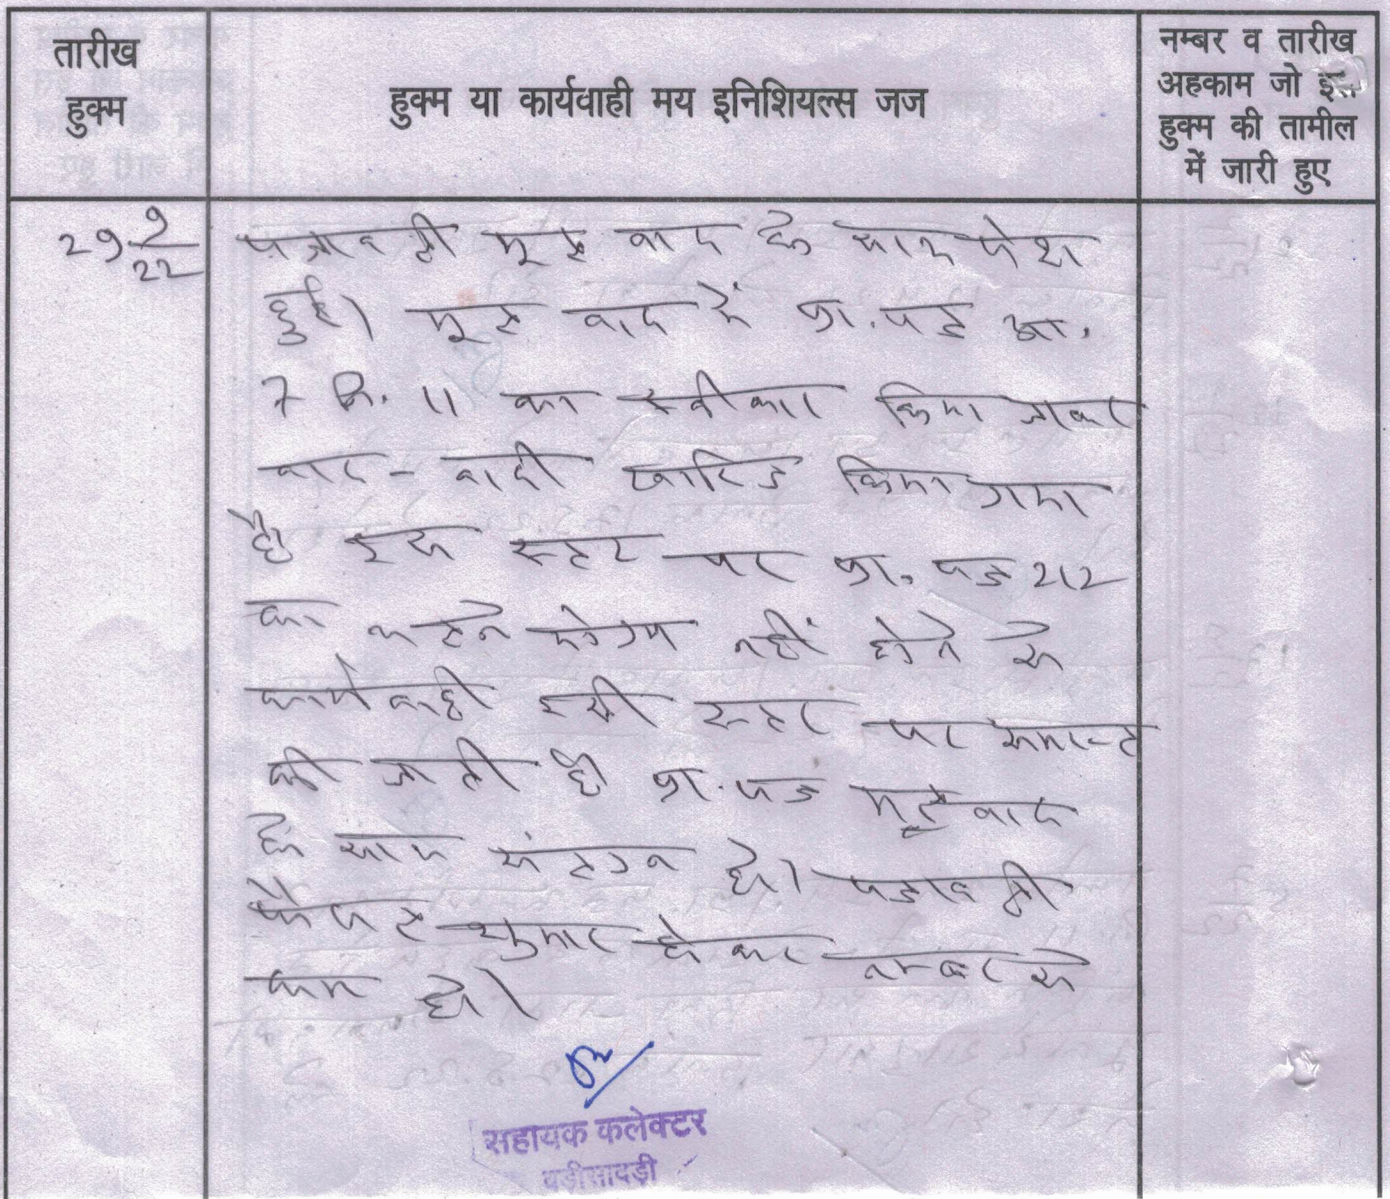 तारीख
हुक्म
हुक्म या कार्यवाही मय इनिशियल्स जज
नम्बर व तारीख
अहकाम जो इस
हुक्म की तामील
में जारी हुए
29 9/22
पत्रावली मूल वाद के साथ पेश
हुई। मूल वाद में प्रा. पत्र आ.
7 नि. 11 का स्वीकार किया जाकर
वाद - वादी खारिज किया गया
है। इस स्तर पर प्रा. पत्र 212
का चलने योग्य नहीं होने से
कार्यवाही इसी स्तर पर समाप्त
की जाती है। प्रा. पत्र मूल वाद
के साथ संलग्न हो। पत्रावली
फैसल शुमार होकर नम्बर से
कम हो।
सहायक कलेक्टर
बड़ीसादड़ी